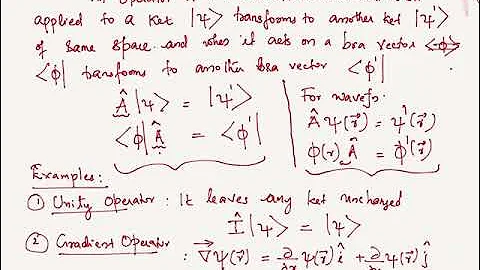 applied to a Ket |ψ> transforms to another ket |ψ'>
of same space and when it acts on a bra vector
<ϕ| transforms to another bra vector <ϕ'|
Â |ψ> = |ψ'>
<ϕ| Â = <ϕ'|
For wavefs.
Â ψ(r⃗) = ψ'(r⃗)
ϕ(r) Â = ϕ'(r⃗)
Examples:
① Unity Operator : It leaves any ket unchanged
Î |ψ> = |ψ>
② Gradient Operator : ∇⃗ψ(r⃗) = ∂/∂x ψ(r⃗) î + ∂/∂y ψ(r⃗) ĵ